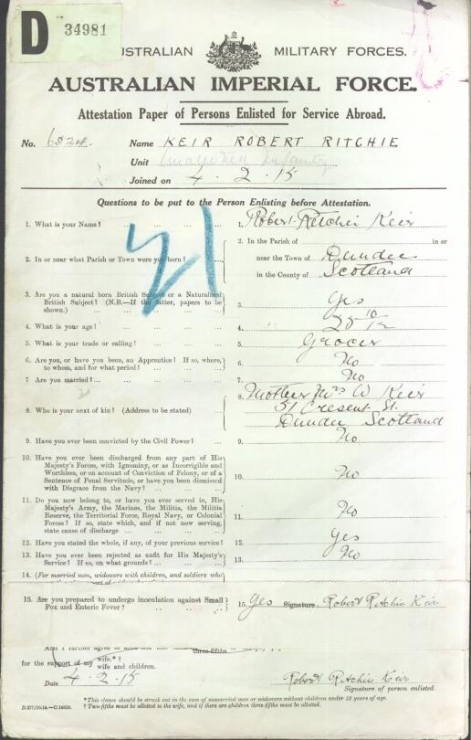 D 34981
AUSTRALIAN MILITARY FORCES.
AUSTRALIAN IMPERIAL FORCE.
Attestation Paper of Persons Enlisted for Service Abroad.
No. Name KEIR ROBERT RITCHIE
Unit
Joined on 4.2.15
Questions to be put to the Person Enlisting before Attestation.
1. What is your Name? ... 1. Robert Ritchie Keir
2. In or near what Parish or Town were you born? ... 2. In the Parish of in or
near the Town of Dundee
in the County of Scotland
3. Are you a natural born British Subject or a Naturalized
British Subject? (N.B.—If the latter, papers to be
shown.) ... 3. Yes
4. What is your age? ... 4. 10/12
5. What is your trade or calling? ... 5. Grocer
6. Are you, or have you been, an Apprentice? If so, where,
to whom, and for what period? ... 6. No
7. Are you married? ... 7. No
8. Who is your next of kin? (Address to be stated) ... 8. Mother Mrs W Keir
51 Cresent St.
Dundee Scotland
9. Have you ever been convicted by the Civil Power? ... 9. No
10. Have you ever been discharged from any part of His
Majesty's Forces, with Ignominy, or as Incorrigible and
Worthless, or on account of Conviction of Felony, or of a
Sentence of Penal Servitude, or have you been dismissed
with Disgrace from the Navy? ... 10. No
11. Do you now belong to, or have you ever served in, His
Majesty's Army, the Marines, the Militia, the Militia
Reserve, the Territorial Force, Royal Navy, or Colonial
Forces? If so, state which, and if not now serving,
state cause of discharge ... 11. No
12. Have you stated the whole, if any, of your previous service? 12. Yes
13. Have you ever been rejected as unfit for His Majesty's
Service? If so, on what grounds? ... 13. No
14. (For married men, widowers with children, and soldiers who
15. Are you prepared to undergo inoculation against Small
Pox and Enteric Fever? ... 15. Yes Signature Robert Ritchie Keir
three-fifths
for the support of my wife.*†
wife and children.
Date 4.2.15 Robert Ritchie Keir
Signature of person enlisted.
*This clause should be struck out in the case of unmarried men or widowers without children under 18 years of age.
† Two-fifths must be allotted to the wife, and if there are children three-fifths must be allotted.